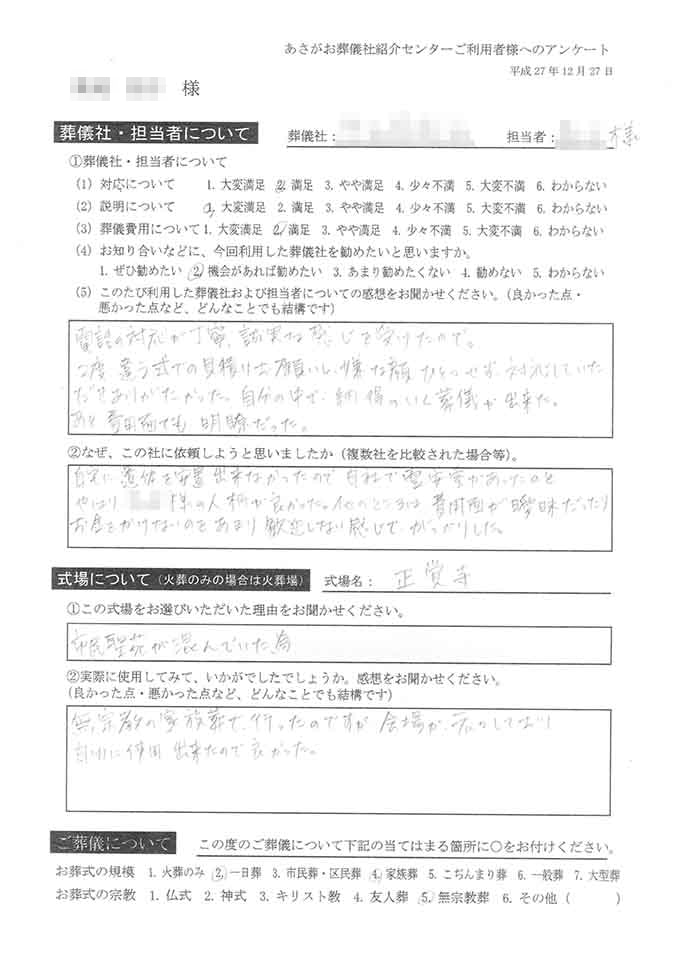 あさがお葬儀社紹介センターご利用者様へのアンケート
平成27年12月27日
様
葬儀社・担当者について 葬儀社： 担当者： 様
①葬儀社・担当者について
(1) 対応について 1. 大変満足 2. 満足 3. やや満足 4. 少々不満 5. 大変不満 6. わからない
(2) 説明について 1. 大変満足 2. 満足 3. やや満足 4. 少々不満 5. 大変不満 6. わからない
(3) 葬儀費用について 1. 大変満足 2. 満足 3. やや満足 4. 少々不満 5. 大変不満 6. わからない
(4) お知り合いなどに、今回利用した葬儀社を勧めたいと思いますか。
1. ぜひ勧めたい 2. 機会があれば勧めたい 3. あまり勧めたくない 4. 勧めない 5. わからない
(5) このたび利用した葬儀社および担当者についての感想をお聞かせください。（良かった点・
悪かった点など、どんなことでも結構です）
電話の対応が丁寧、誠実な感じを受けたので。
2度違う式での見積りお願いし、嫌な顔ひとつせず、対応していた
だきありがたかった。自分の中で、納得のいく葬儀が出来た。
あと費用面でも明瞭だった。
②なぜ、この社に依頼しようと思いましたか（複数社を比較された場合等）。
自宅に遺体を安置出来なかったので自社で霊安室があったのと
やはり 様の人柄が良かった。他のところは費用面が曖昧だったり
お金をかけないのをあまり歓迎しない感じで、がっかりした。
式場について（火葬のみの場合は火葬場） 式場名： 正覚寺
①この式場をお選びいただいた理由をお聞かせください。
市民聖苑が混んでいた為
②実際に使用してみて、いかがでしたでしょうか。感想をお聞かせください。
（良かった点・悪かった点など、どんなことでも結構です）
無宗教の家族葬で、行ったのですが会場が、しており
自由に使用出来たので良かった。
ご葬儀について この度のご葬儀について下記の当てはまる箇所に○をお付けください。
お葬式の規模 1. 火葬のみ 2. 一日葬 3. 市民葬・区民葬 4. 家族葬 5. こぢんまり葬 6. 一般葬 7. 大型葬
お葬式の宗教 1. 仏式 2. 神式 3. キリスト教 4. 友人葬 5. 無宗教葬 6. その他（ ）